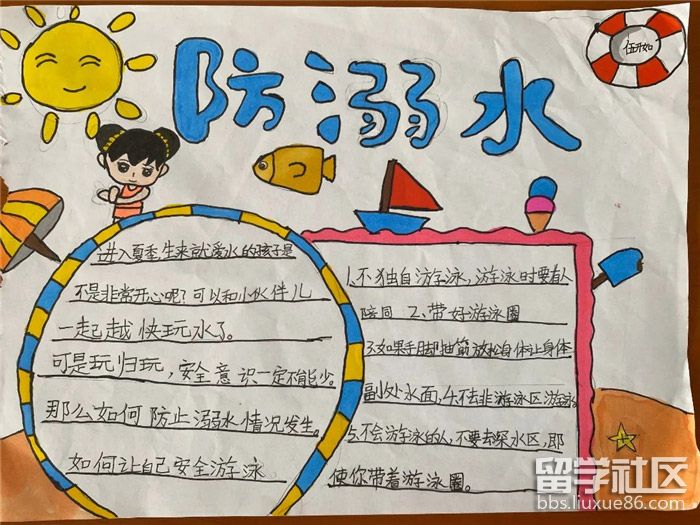 防溺水
伍开如
进入夏季生来就爱水的孩子是
不是非常开心呢?可以和小伙伴儿
一起越快玩水了。
可是玩归玩,安全意识一定不能少。
那么如何防止溺水情况发生。
如何让自己安全游泳
1.不独自游泳,游泳时要有人
陪同 2.带好游泳圈
3.如果手脚抽筋放松身体让身体
副处水面,4.不去非游泳区游泳
5.不会游泳的人,不要去深水区,即
使你带着游泳圈。
留学社区
bbs.liuxue86.com